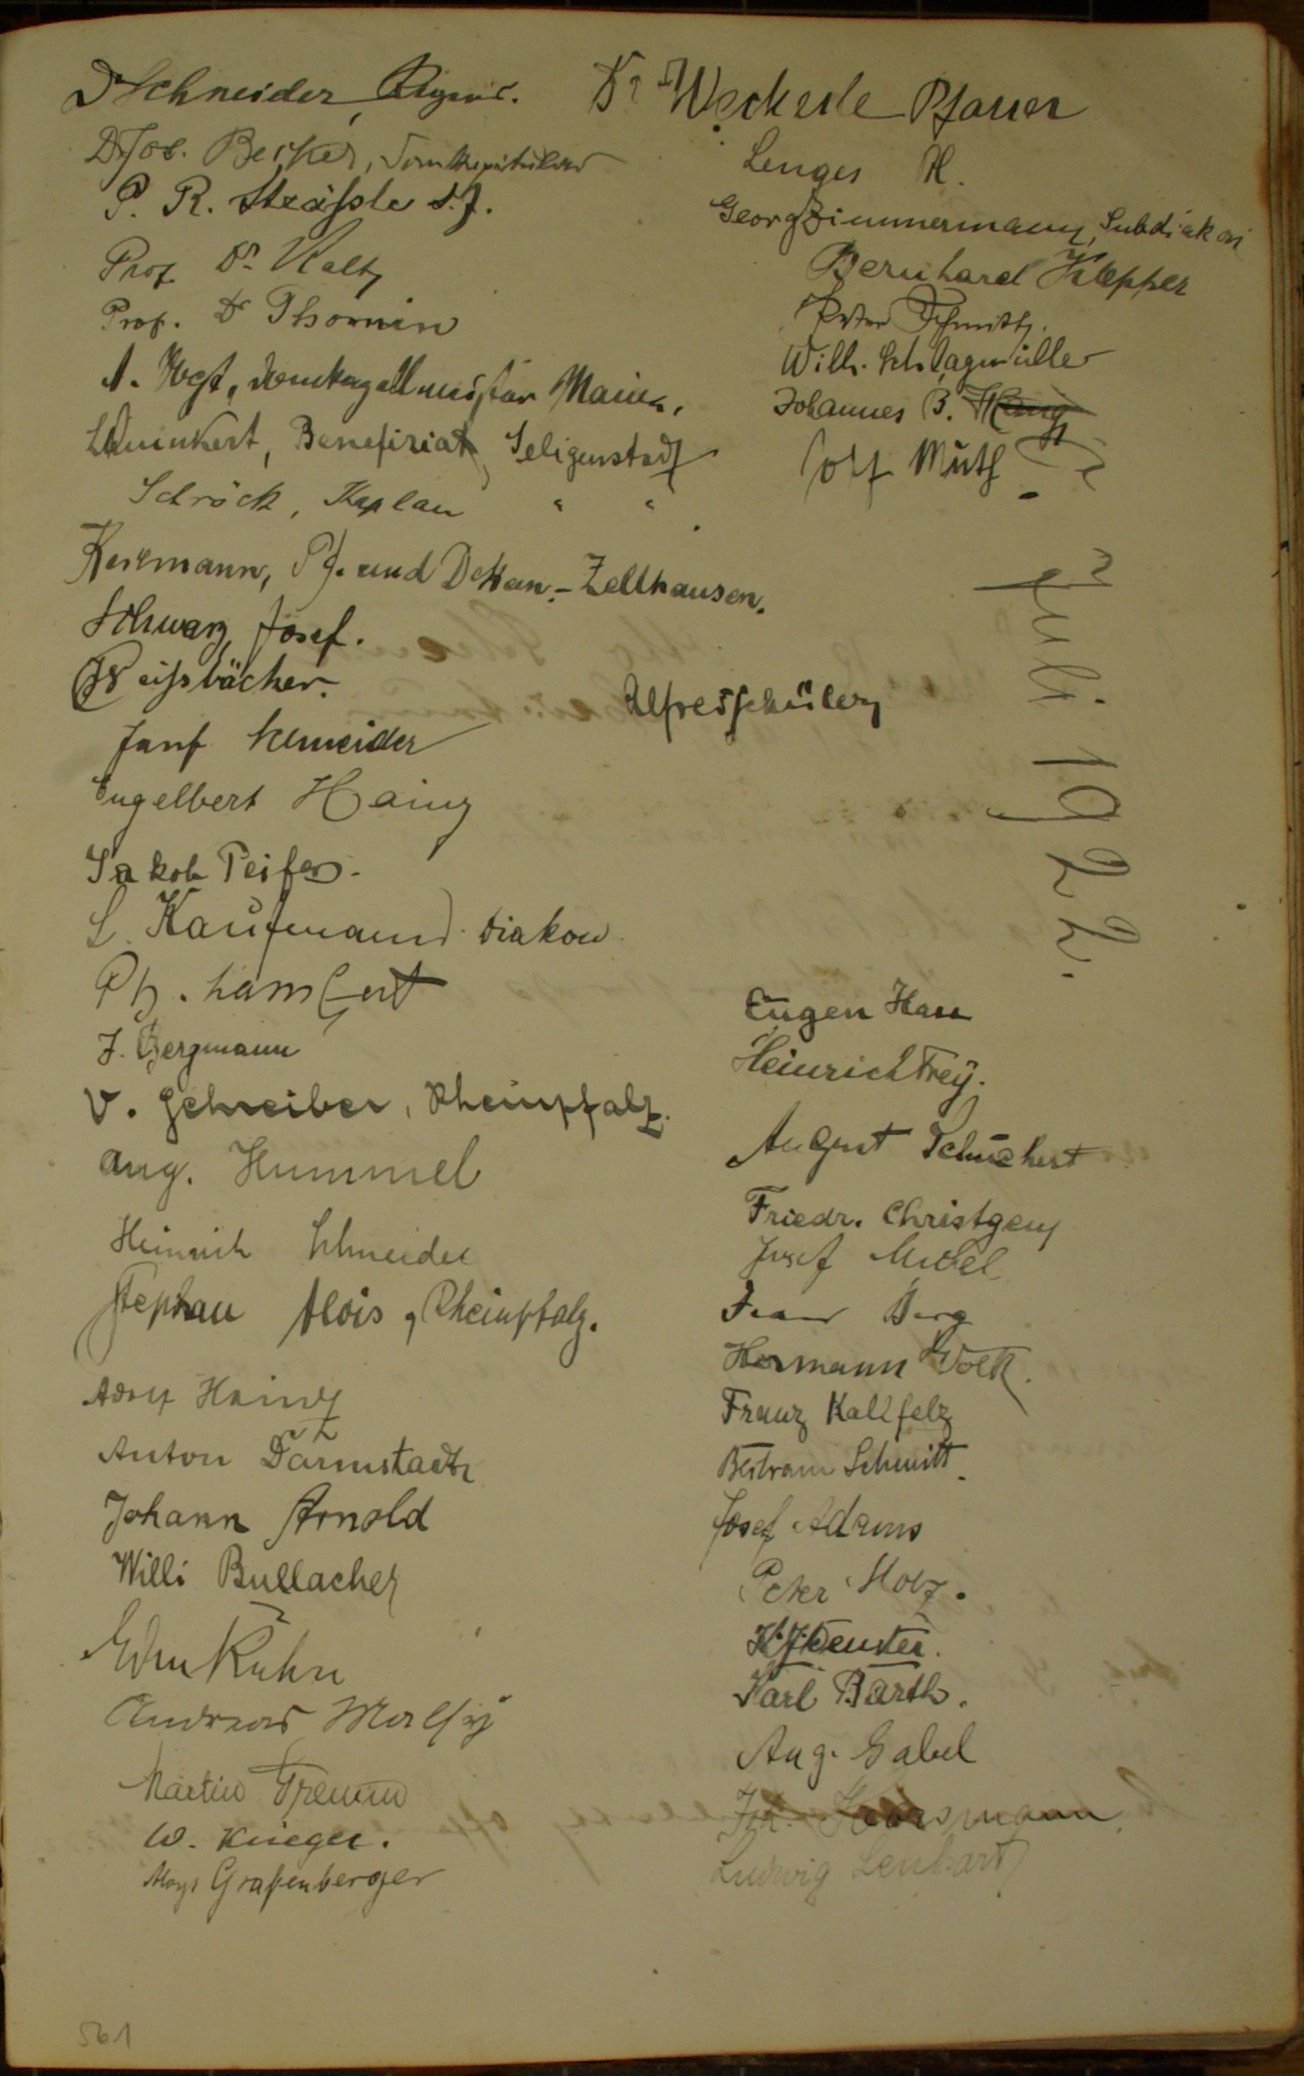 Dr Schneider, Regens.
Dr. Jos. Becker, Domkapitular
P. R. Sträßle S.J.
Prof Dr. Kalt
Prof. Dr Thomin
A. Vogt, Domkapellmeister Mainz.
Winkert, Benefiziat, Seligenstadt
Schröck, Kaplan " " .
Kestmann, Pf. und Dekan - Zellhausen.
Schwarz Josef.
Weißbächer.
Josef Schneider
Engelbert Hainz
Jakob Peifer.
L. Kaufmann Diakon
Ph. Lambert
J. Bergmann
V. Schreiber, Rheinpfalz.
Aug. Hummel
Heinrich Schneider
Stephan Alois, Rheinpfalz.
Adolf Hainz
Anton Darmstadt
Johann Arnold
Willi Bullacher
Edm Kuhn
Andreas Malfy
Martin Tremm
W. Krieger.
Aloys Graßenberger
Dr Weckerle Pfarrer
Lenges H.
Georg Zimmermann, Subdiakon
Bernhard Klepper
Peter Schmitt.
Wilh. Schlagmüller
Johannes B.
Muth
Alfred Schüler
Juli 1922.
Eugen Hau
Heinrich Frey.
August Schuchert
Friedr. Christgen
Josef Michel
Jean Berg
Hermann Volk.
Franz Kallfelz
Bertram Schmitt.
Josef Adams
Peter Holz.
Karl Barth.
Aug. Gabel
Ludwig Lenhart
561